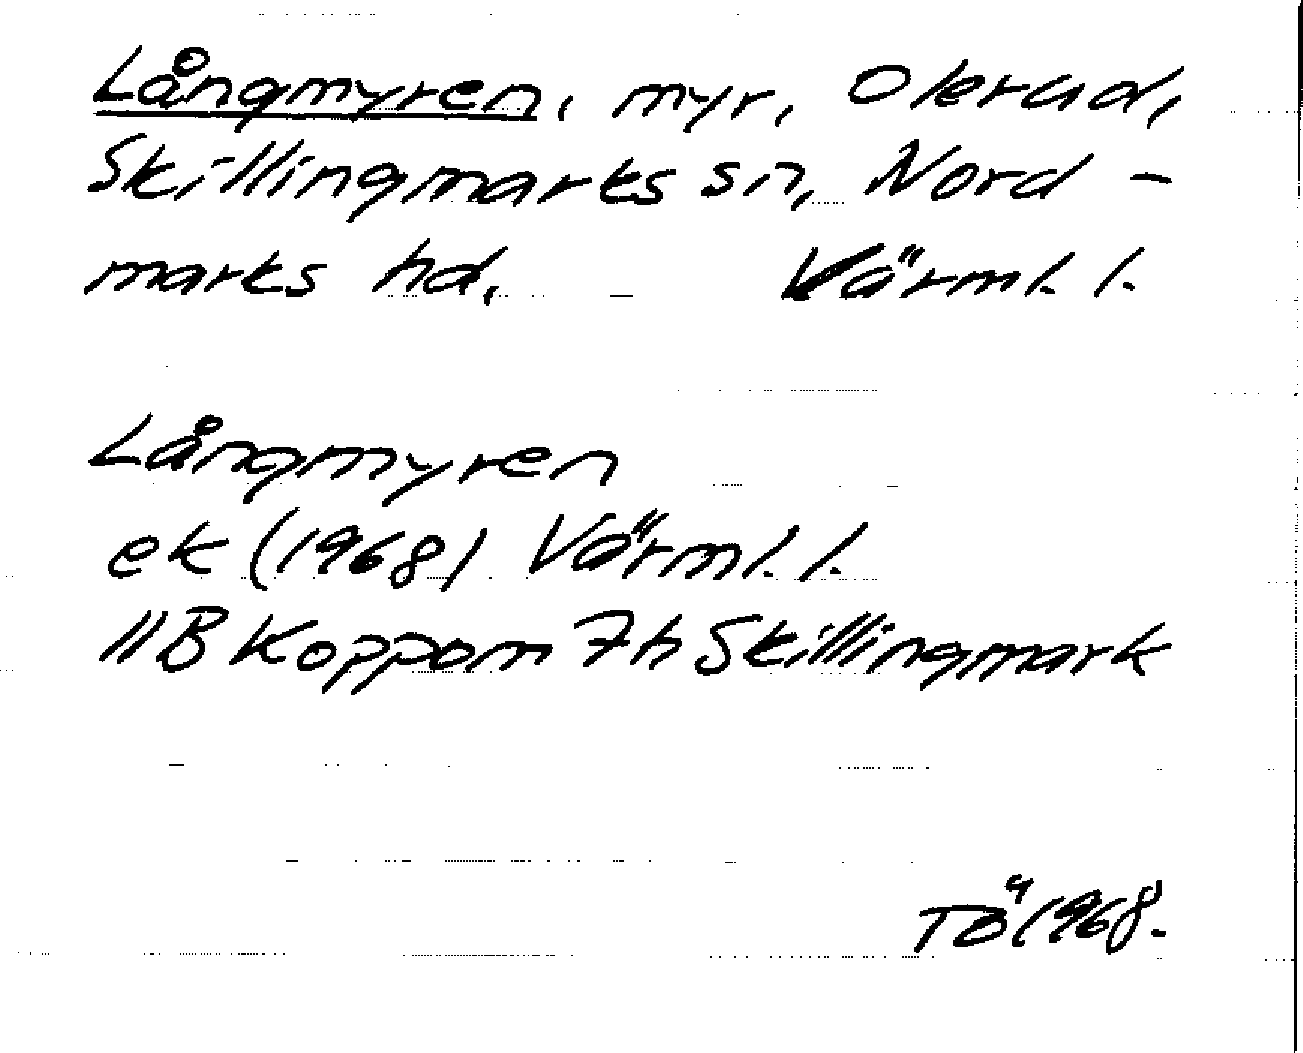 Långmyren, myr, Olerud,
Skillingmarks sn, Nord-
marks hd. Värml. l.
Långmyren
ek (1968) Värml. l.
11B Koppom 7h Skillingmark
TÖ 1968.